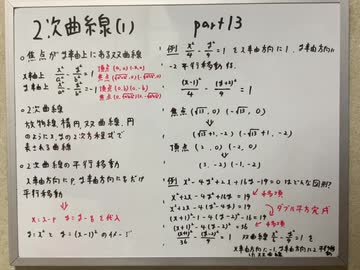 2次曲線(1) part13
○焦点がy軸上にある双曲線
x軸上 x²/a² - y²/b² = 1 頂点(a,0)(-a,0)
焦点(√a²+b²,0)(-√a²+b²,0)
y軸上 x²/a² - y²/b² = -1 頂点(0,b)(0,-b)
焦点(0,√a²+b²)(0,-√a²+b²)
○2次曲線
放物線, 楕円, 双曲線, 円
のようにx,yの2次方程式で
表される曲線
○2次曲線の平行移動
x軸方向にp, y軸方向にqだけ
平行移動
x=x-p y=y-qを代入
y=x² と y=(x-1)² のイメージ
例 x²/4 - y²/9 = 1 をx軸方向に1, y軸方向に
-2平行移動する.
(x-1)²/4 - (y+2)²/9 = 1
焦点 (√13, 0) (-√13, 0)
(√13+1, -2) (-√13+1, -2)
頂点 (2, 0) (-2, 0)
(3, -2) (-1, -2)
例 x²-4y²+2x+16y-19=0はどんな図形?
x²+2x-4y²+16y=19
x²+2x-4(y²-4y)=19
(x+1)²-1-4(y-2)²+16=19
(x+1)²-4(y-2)²=36
ダブル平方完成
双曲線
x軸方向に-1, y軸方向に2平行移動